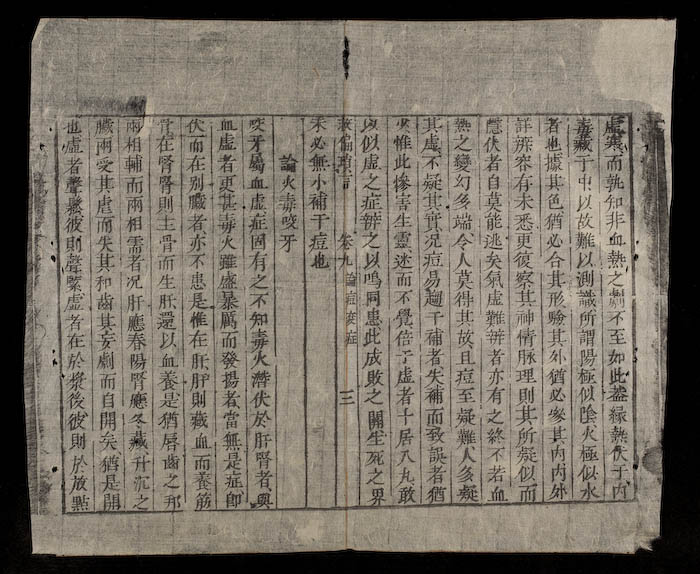 虛寒而孰知非血熱之劇不至如此蓋緣熱伏于內
毒藏于中以故難以測識所謂陽極似陰火極似水
者也據其色猶必合其形驗其外猶必察其內內外
詳辨容有未悉更復察其神情脉理則其所疑似而
隱伏者自莫能逃矣氣虛難辨者亦有之終不若血
熱之變幻多端令人莫得其故且痘至疑難人多疑
其虛不疑其實況痘易趨于補者失補而致誤者猶
少惟此慘害生靈迷而不覺倍于虛者十居八九敢
以似虛之症辨之以鳴同患此成敗之關生死之界
救偏瑣言 卷九 論痘 症 三
未必無小補于痘也
論火毒咬牙
咬牙屬血虛症固有之不知毒火潛伏於肝腎者與
血虛者更甚毒火雖盛暴厲而發揚者當無是症即
伏而在别臟者亦不患是惟在肝肝則藏血而養筋
骨在腎腎則主骨而生肝還以血養是猶唇齒之邦
兩相輔而兩相需者況肝應春陽腎應冬藏升沉之
臟兩受其虐而失其和齒其妄劇而自開矣猶是開
也虛者聲鬆彼則聲緊虛者在於漿後彼則於放點